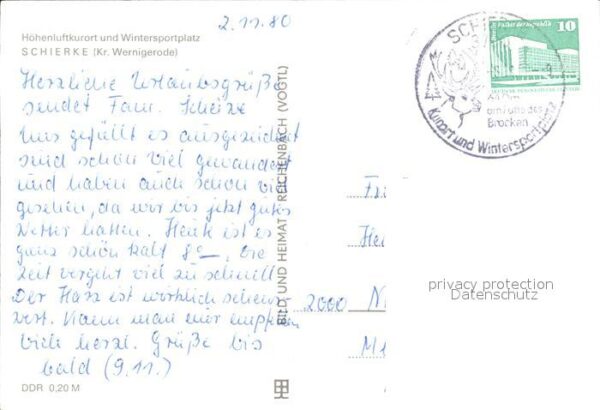 2.11.80
Höhenluftkurort und Wintersportplatz
SCHIERKE (Kr. Wernigerode)
Herzliche Urlaubsgrüße
sendet Fam.
Uns gefällt es ausgezeichnet
sind schon viel gewandert
und haben auch schon viel
gesehen, da wir bis jetzt gutes
Wetter hatten. Heute ist es
ganz schön kalt 8°, die
Zeit vergeht viel zu schnell.
Der Harz ist wirklich sehens
wert. Kann man nur empfehlen
Viele herzl. Grüße bis
bald (9.11.)
DDR 0,20 M
BILD UND HEIMAT REICHENBACH (VOGTL)
SCHIE
am Fuße des
Brocken
Kurort und Wintersportplatz
10
2000 N
privacy protection
Datenschutz